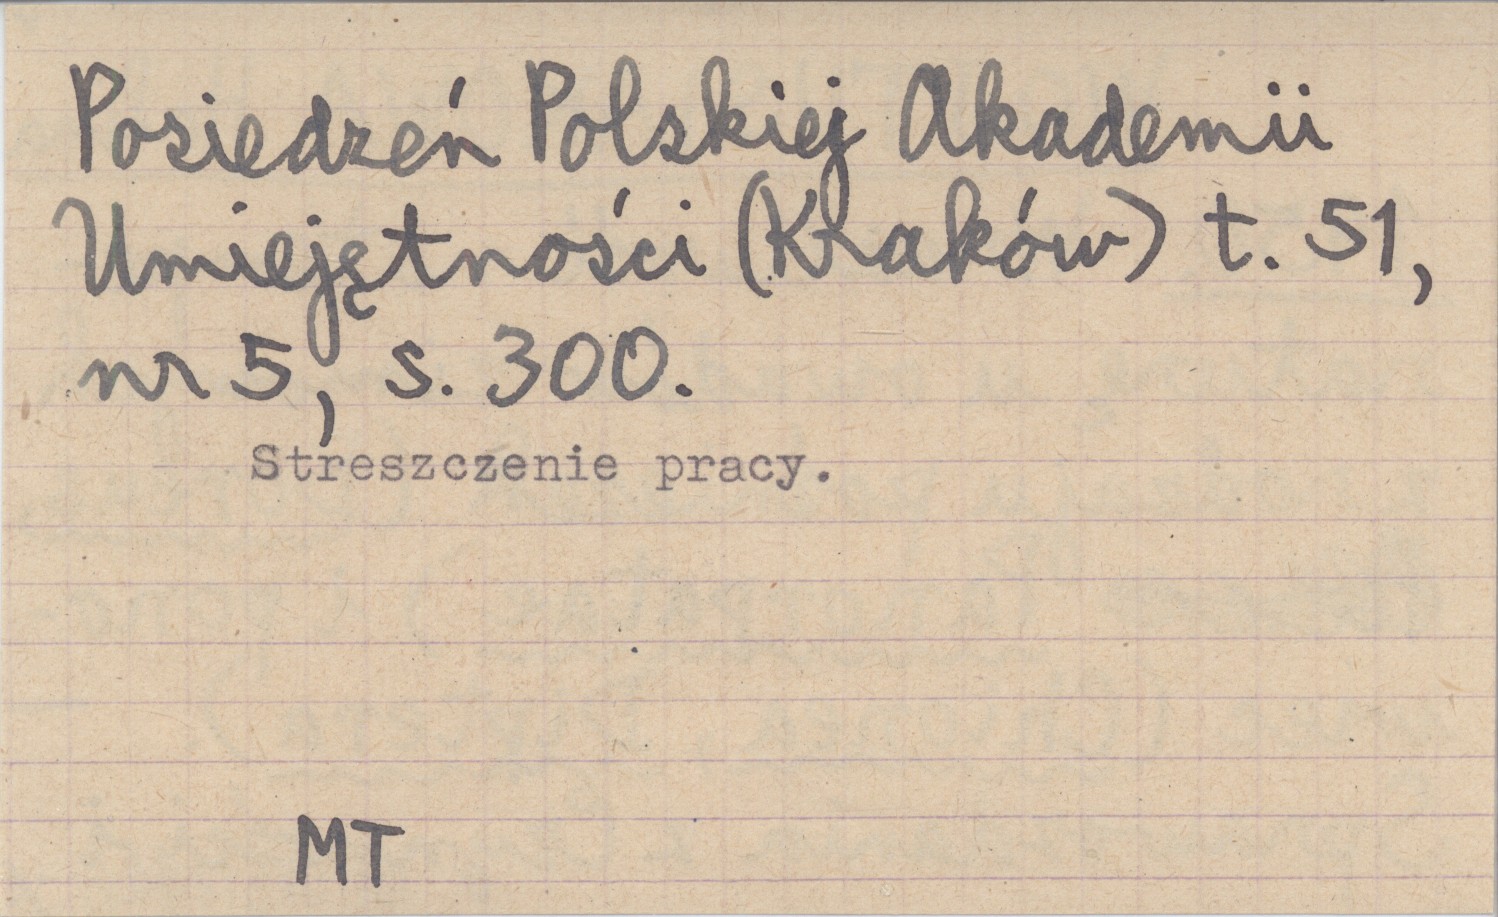 Posiedzeń Polskiej Akademii
Umiejętności (Kraków) t. 51,
nr 5, s. 300.
Streszczenie pracy.
MT